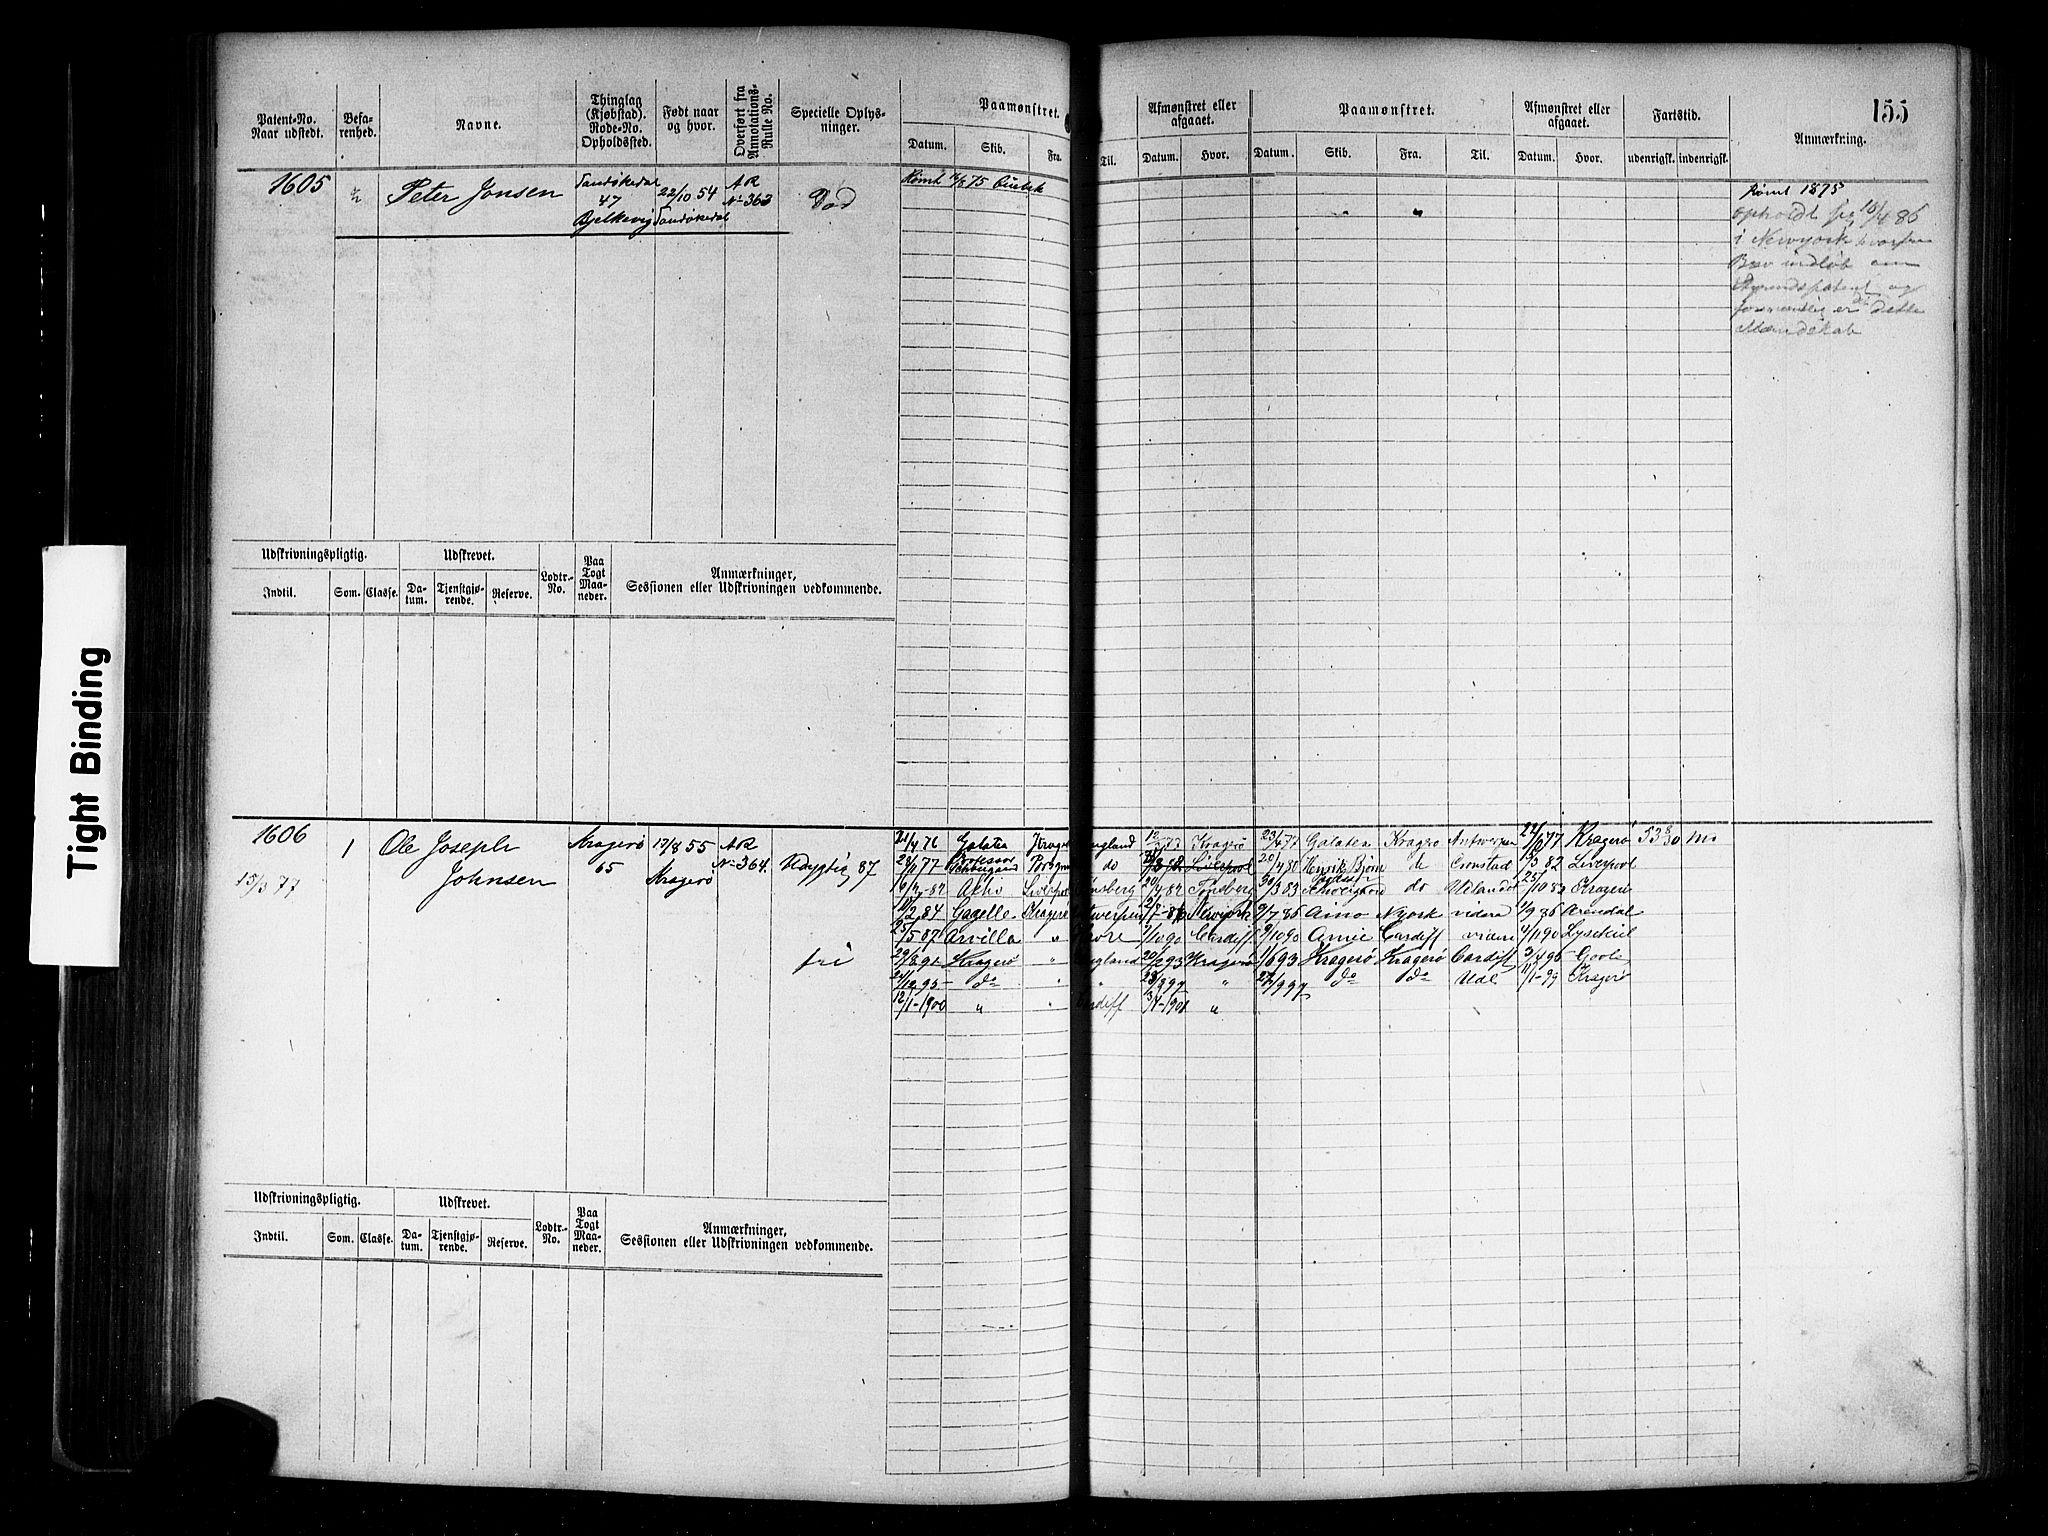 Tight Binding
155
Patent-No. Naar udstedt.
Befarenhed.
Navne.
Thinglag (Kjøbstad). Rode-No. Opholdssted.
Født naar og hvor.
Overført fra Annotations-Rulle No.
Specielle Oplysninger.
Paamønstret.
Datum. Skib. Fra. Til.
Afmønstret eller afgaaet.
Datum. Hvor.
Paamønstret.
Datum. Skib. Fra. Til.
Afmønstret eller afgaaet.
Datum. Hvor.
Fartstid.
udenrigsk. indenrigsk.
Anmærkning.
1605 ½ Peter Jonsen
Sandøkedal 47 Bjelkevig
22/10 54 Sandøkedal
AR No 363
Død
Rømt 75
Rømt 1875
opholdt sig 10/4 86
i Newyork hvorfra
Brev indløb om
og
er det dette
Mandskab
Udskrivningspligtig. Udskrevet. Lodtr.-No. Paa Togt Maaneder. Anmærkninger, Sessionen eller Udskrivningen vedkommende.
Indtil. Som. Classe. Datum. Tjenstgjørende. Reserve.
1606 1 Ole Joseph Johnsen
15/3 77
Kragerø 65
17/8 55 Kragerø
AR No 364.
Udygtig 87
fri
21/4 76 Galatea Kragerø England Kragerø 23/4 77 Galatea Kragerø Antwerpen 24/6 77 Kragerø 53 8/30 m
77 Professor Schweigaard do Liverpool 20/4 80 Henrik Bjørn do Cronstad 3 82 Liverpool
82 Liverpool Tønsberg 20/4 82 Tønsberg 30/3 83 Schweigaard do Udlandet 25/10 83 Kragerø
11/2 84 Gazelle Kragerø Antwerpen Newyork 9/7 86 Aino NYork videre 1/9 86 Arendal
25/5 87 Arvilla " 1/10 90 Cardiff 9/10 90 Amie Cardiff videre 4/11 90 Lysekiil
29/8 91 Kragerø " England 20/2 93 Kragerø 1/6 93 Kragerø Kragerø Cardiff 3/4 95 Goole
21/12 95 do " " 23/8 97 " 27/9 97 do do Udl 11/1 99 Kragerø
12/1-1900 " " Cardiff 3/1-1901 "
Udskrivningspligtig. Udskrevet. Lodtr.-No. Paa Togt Maaneder. Anmærkninger, Sessionen eller Udskrivningen vedkommende.
Indtil. Som. Classe. Datum. Tjenstgjørende. Reserve.